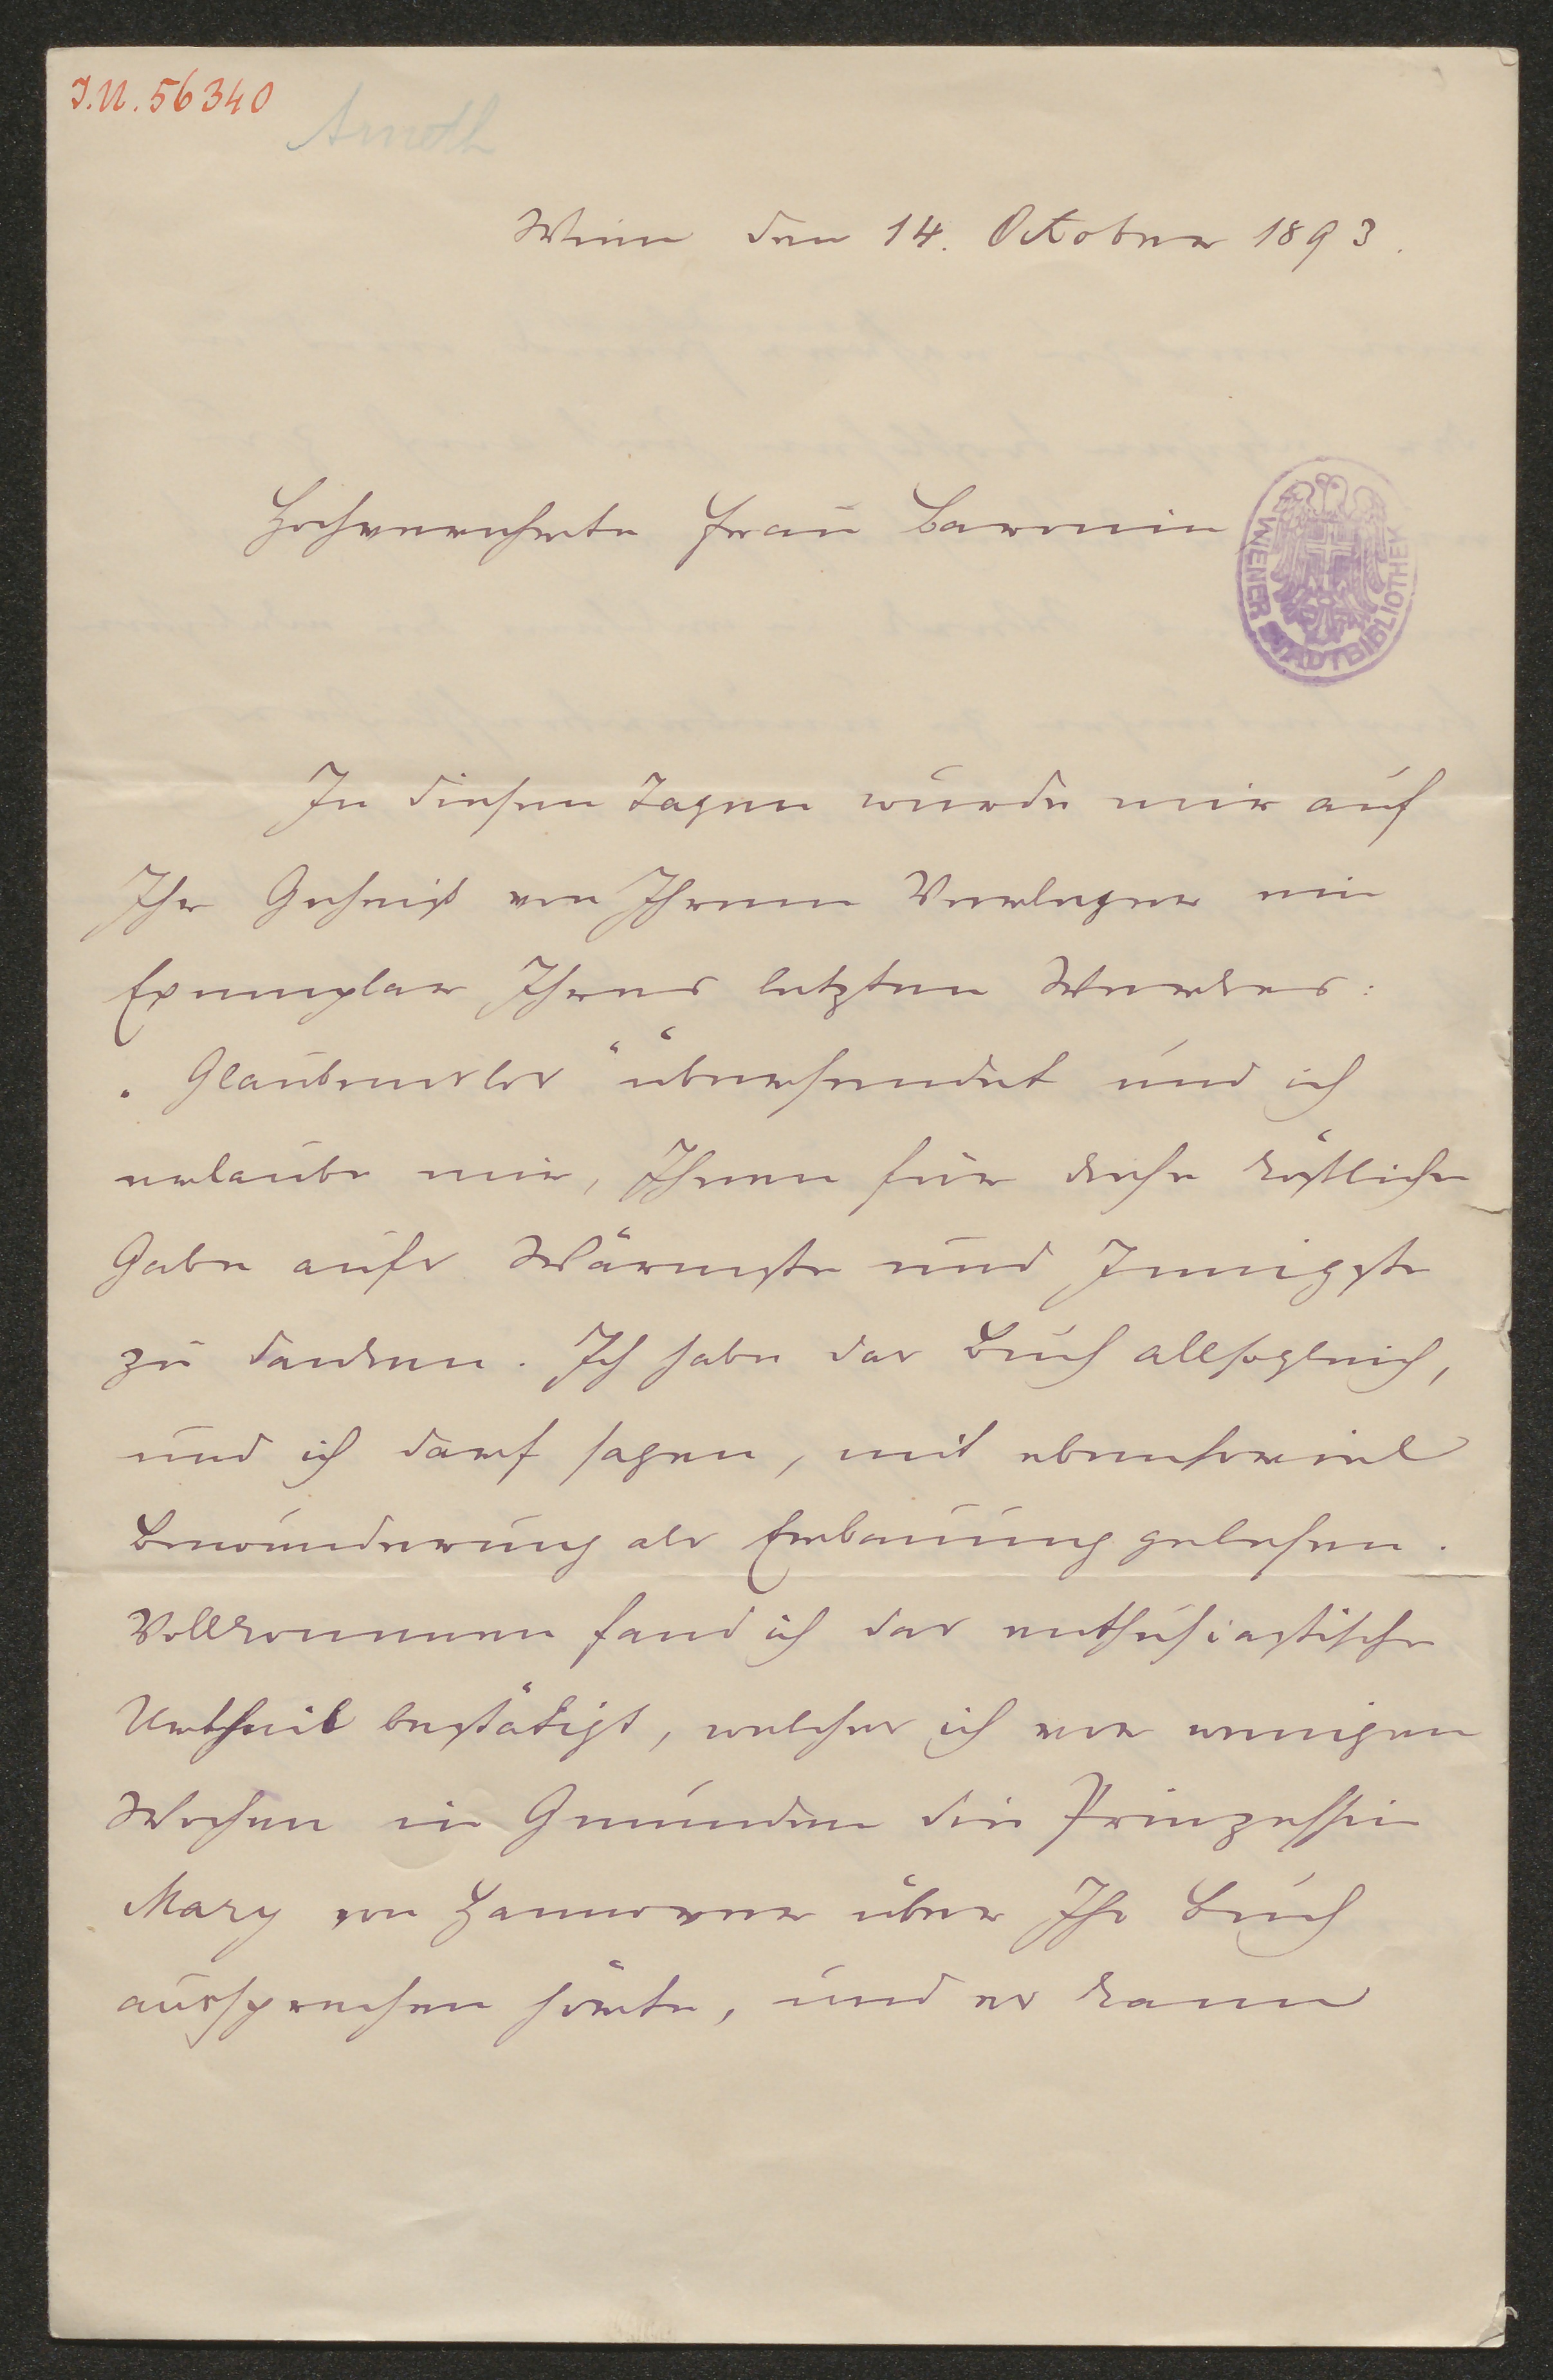 I.N. 56340
Arneth
Wien den 14. Oktober 1893.
Hochverehrte Frau Baronin
WIENER STADTBIBLIOTHEK
In diesen Tagen wurde mir auf
Ihr Geheiß von Ihrem Verleger ein
Exemplar Ihres letzten Werkes:
„Glaubenslos“ übersendet und ich
erlaube mir, Ihnen für diese köstliche
Gabe aufs Wärmste und Innigste
zu danken. Ich habe das Buch allsogleich,
und ich darf sagen, mit ebensoviel
Bewunderung als Erbauung gelesen.
Vollkommen fand ich das enthusiastische
Urtheil bestätigt, welches ich vor wenigen
Wochen in Gmunden die Prinzessin
Mary von Hannover über Ihr Buch
aussprechen hörte, und es kann